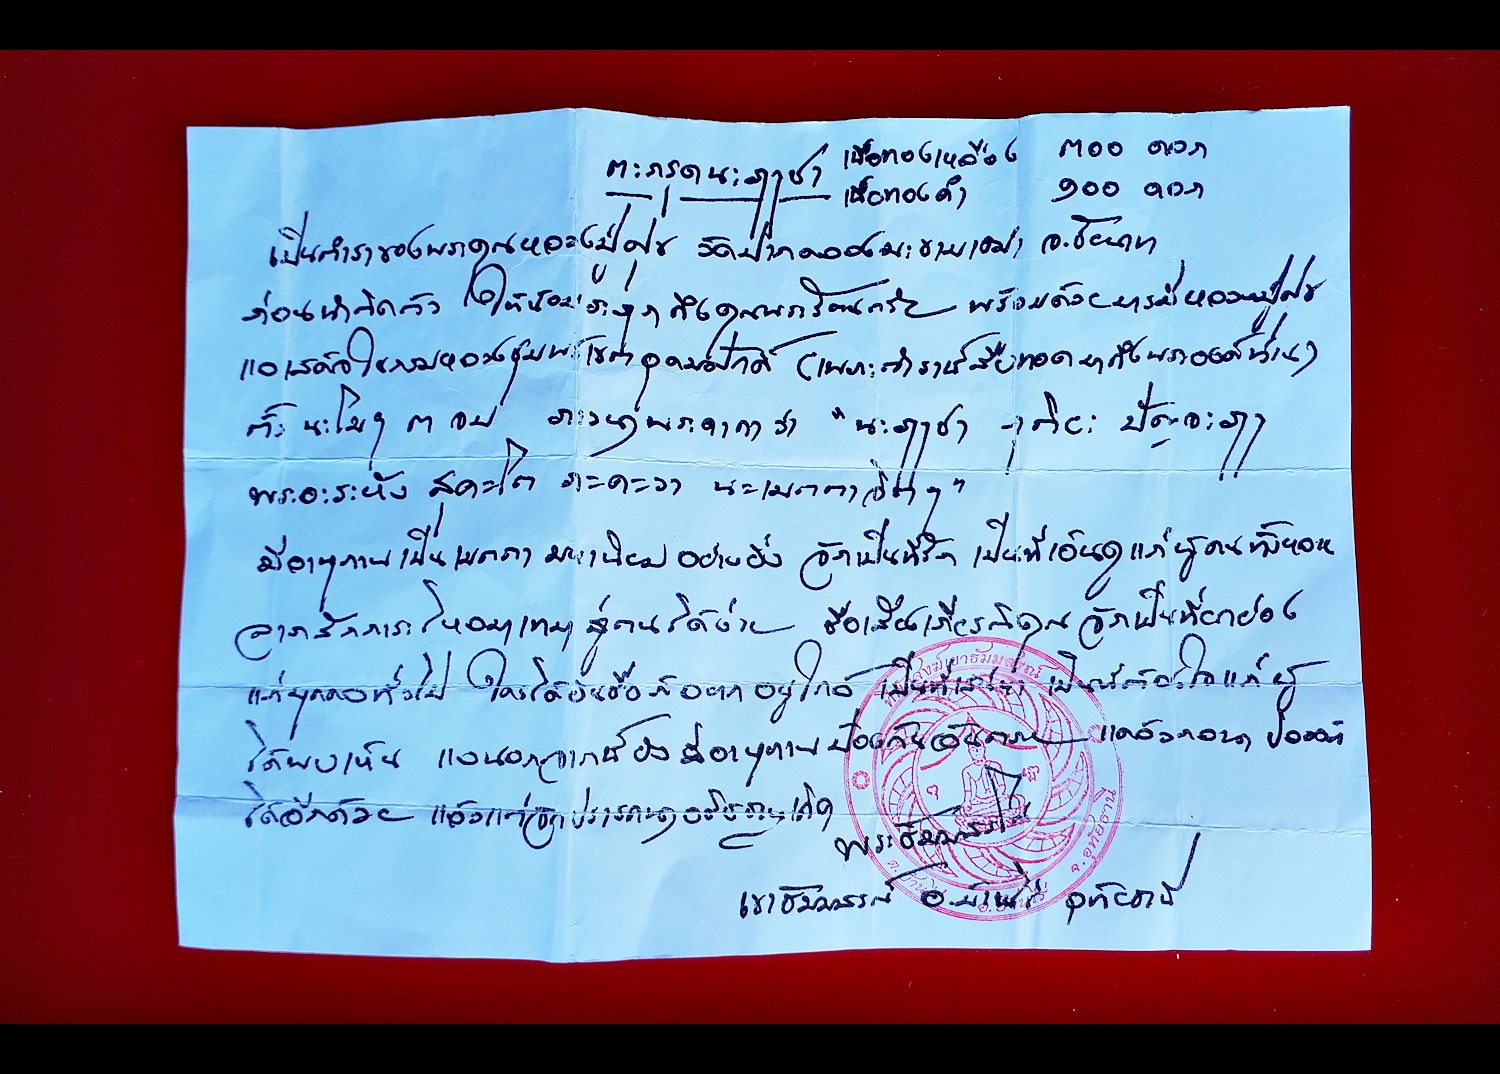 ตะกรุดนะฤาชา เนื้อทองเหลือง ๓๐๐ ดอก
เนื้อทองคำ ๑๐๐ ดอก
เป็นตำราของพระคุณหลวงปู่ศุข วัดปากคลองมะขามเฒ่า จ.ชัยนาท
ก่อนนำติดตัว ให้น้อมระลึกถึงคุณพระรัตนตรัย พร้อมด้วยบารมีหลวงปู่ศุข
และเสด็จในกรมหลวงชุมพรเขตอุดมศักดิ์ (เพราะตำรานี้สืบทอดมาถึงพระองค์ท่าน)
ตั้ง นะโมฯ ๓ จบ ภาวนาพระคาถาว่า "นะฤาชา ฤาติยะ ปัจจะฤา
พระอะระหัง สุคะโต ภะคะวา นะเมตตาจิตฯ"
มีอานุภาพเป็นเมตตา มหานิยมอย่างยิ่ง จักเป็นที่รัก เป็นที่เอ็นดูแก่ผู้คนทั้งหลาย
ลาภสักการะไหลมาเทมาสู่ตนได้ง่าย ชื่อเสียงเกียรติคุณ จักเป็นที่ยกย่อง
แก่บุคคลทั่วไป ใครได้ยินชื่อก็อยากอยู่ใกล้ เป็นที่เสน่หา เป็นที่ต้องใจแก่ผู้
ได้พบเห็น และนอกจากนี้ยังมีอานุภาพป้องกันอันตราย แคล้วคลาด ปลอดภัย
ได้อีกด้วย แล้วแต่จักปรารถนาอธิษฐานเถิด
พระธัมมสรณ์
เขาธัมมสรณ์ อ.บ้านไร่ อุทัยธานี
จ.อุทัยธานี